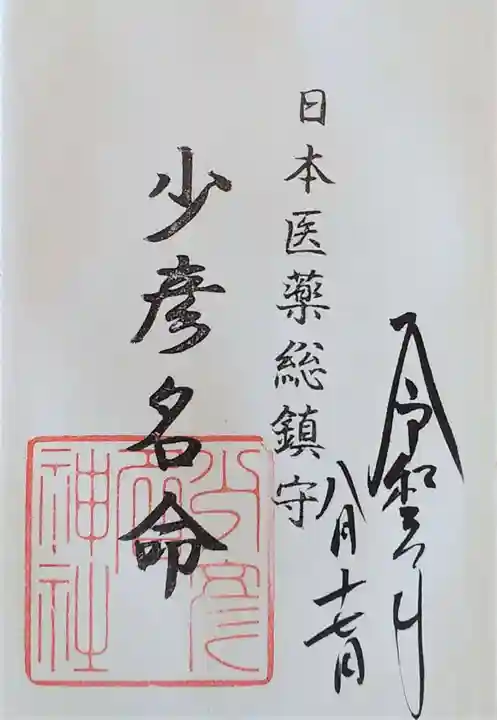 日本医薬総鎮守
少彦名命
八月十七日
少彦名神社